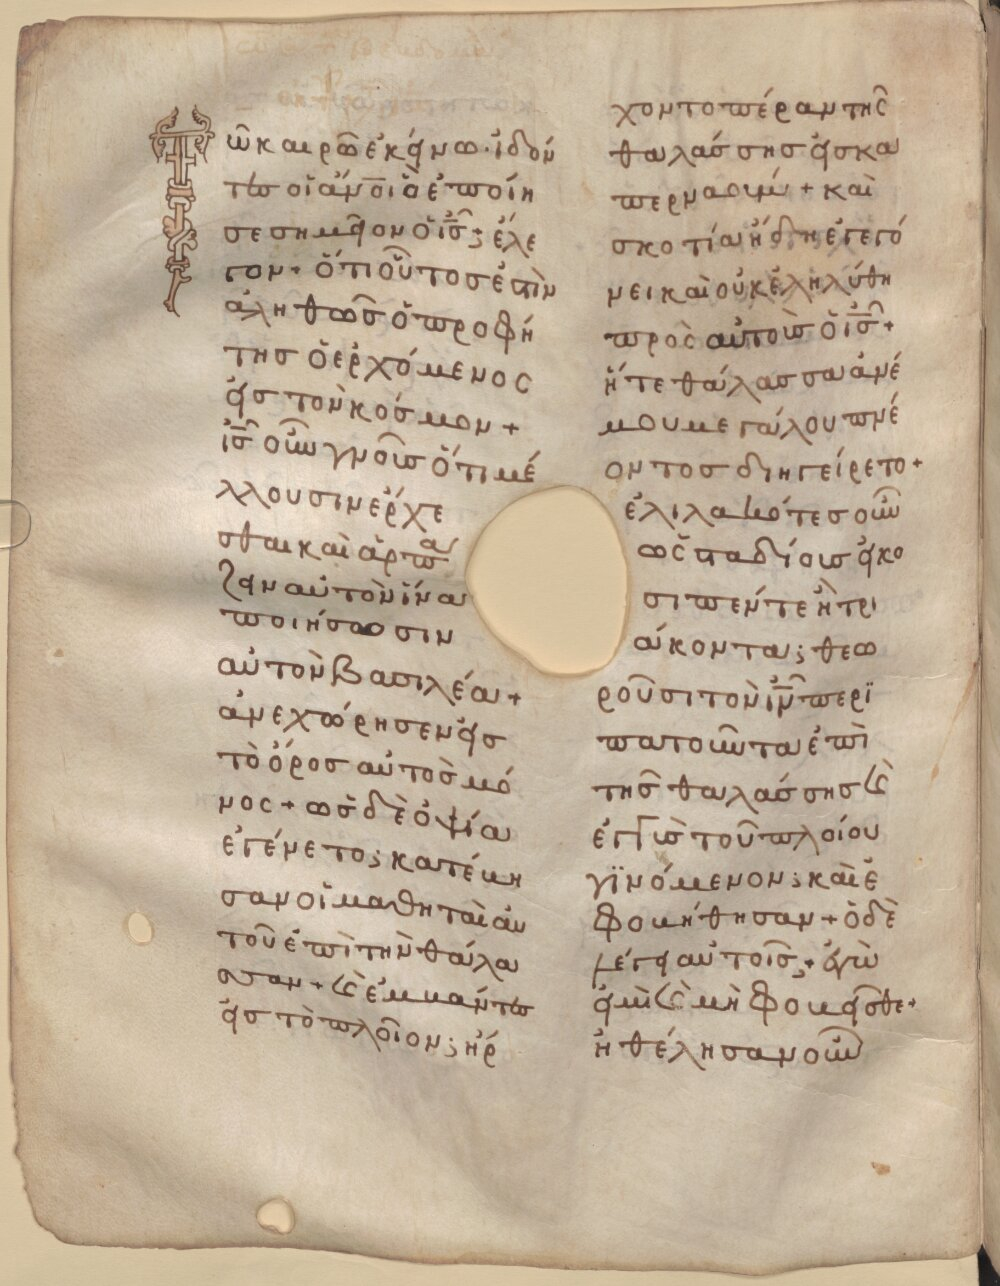 Τῶ καιρῶ ἐκείνω· ἰδόν
τες οἱ ἄνοι ὃ ἐποίη
σε σημεῖον ὁ ις; ἔλε
γον+ ὅτι οὗτος ἐστὶν
ἀληθῶς ὁ προφή
της ὁ ἐρχόμενος
εἰς τὸν κόσμον+
ις οὖν γνοὺς ὅτι μέ
λλουσιν ἔρχε
σθαι καὶ ἁρπά
ζειν αὐτὸν ἵνα
ποιήσωσιν
αὐτὸν βασιλέα+
ἀνεχώρησεν εἰς
τὸ ὄρος αὐτὸς μό
νος+ ὡς δὲ ὀψία
ἐγένετο; κατέβη
σαν οἱ μαθηταὶ αὐ
τοῦ ἐπὶ τὴν θάλα
σσαν+ καὶ ἐμβάντες
εἰς τὸ πλοῖον; ἤρ
χοντο πέραν τῆς
θαλάσσης εἰς κα
περναούμ+ καὶ
σκοτία ἤδη ἐγεγό
νει καὶ οὐκ ἐλήλύθη
πρὸς αὐτοὺς ὁ ις+
ἥ τε θάλασσα ἀνέ
μου μεγάλου πνέ
οντος διηγείρετο+
ἐλιλακότες οὖν
ὡς σταδίους εἰκο
σι πέντε ἢ τρι
άκοντα; θεω
ροῦσι τὸν ιν περϊ
πατοῦντα ἐπὶ
τῆς θαλάσσης καὶ
ἐγγὺς τοῦ πλοίου
γϊνόμενον; καὶ ἐ
φοβήθησαν+ ὁ δὲ
λέγει αὐτοῖς;+ ἐγώ
εἰμι καὶ μὴ φοβεῖσθε+
ἤθελησαν οὖν